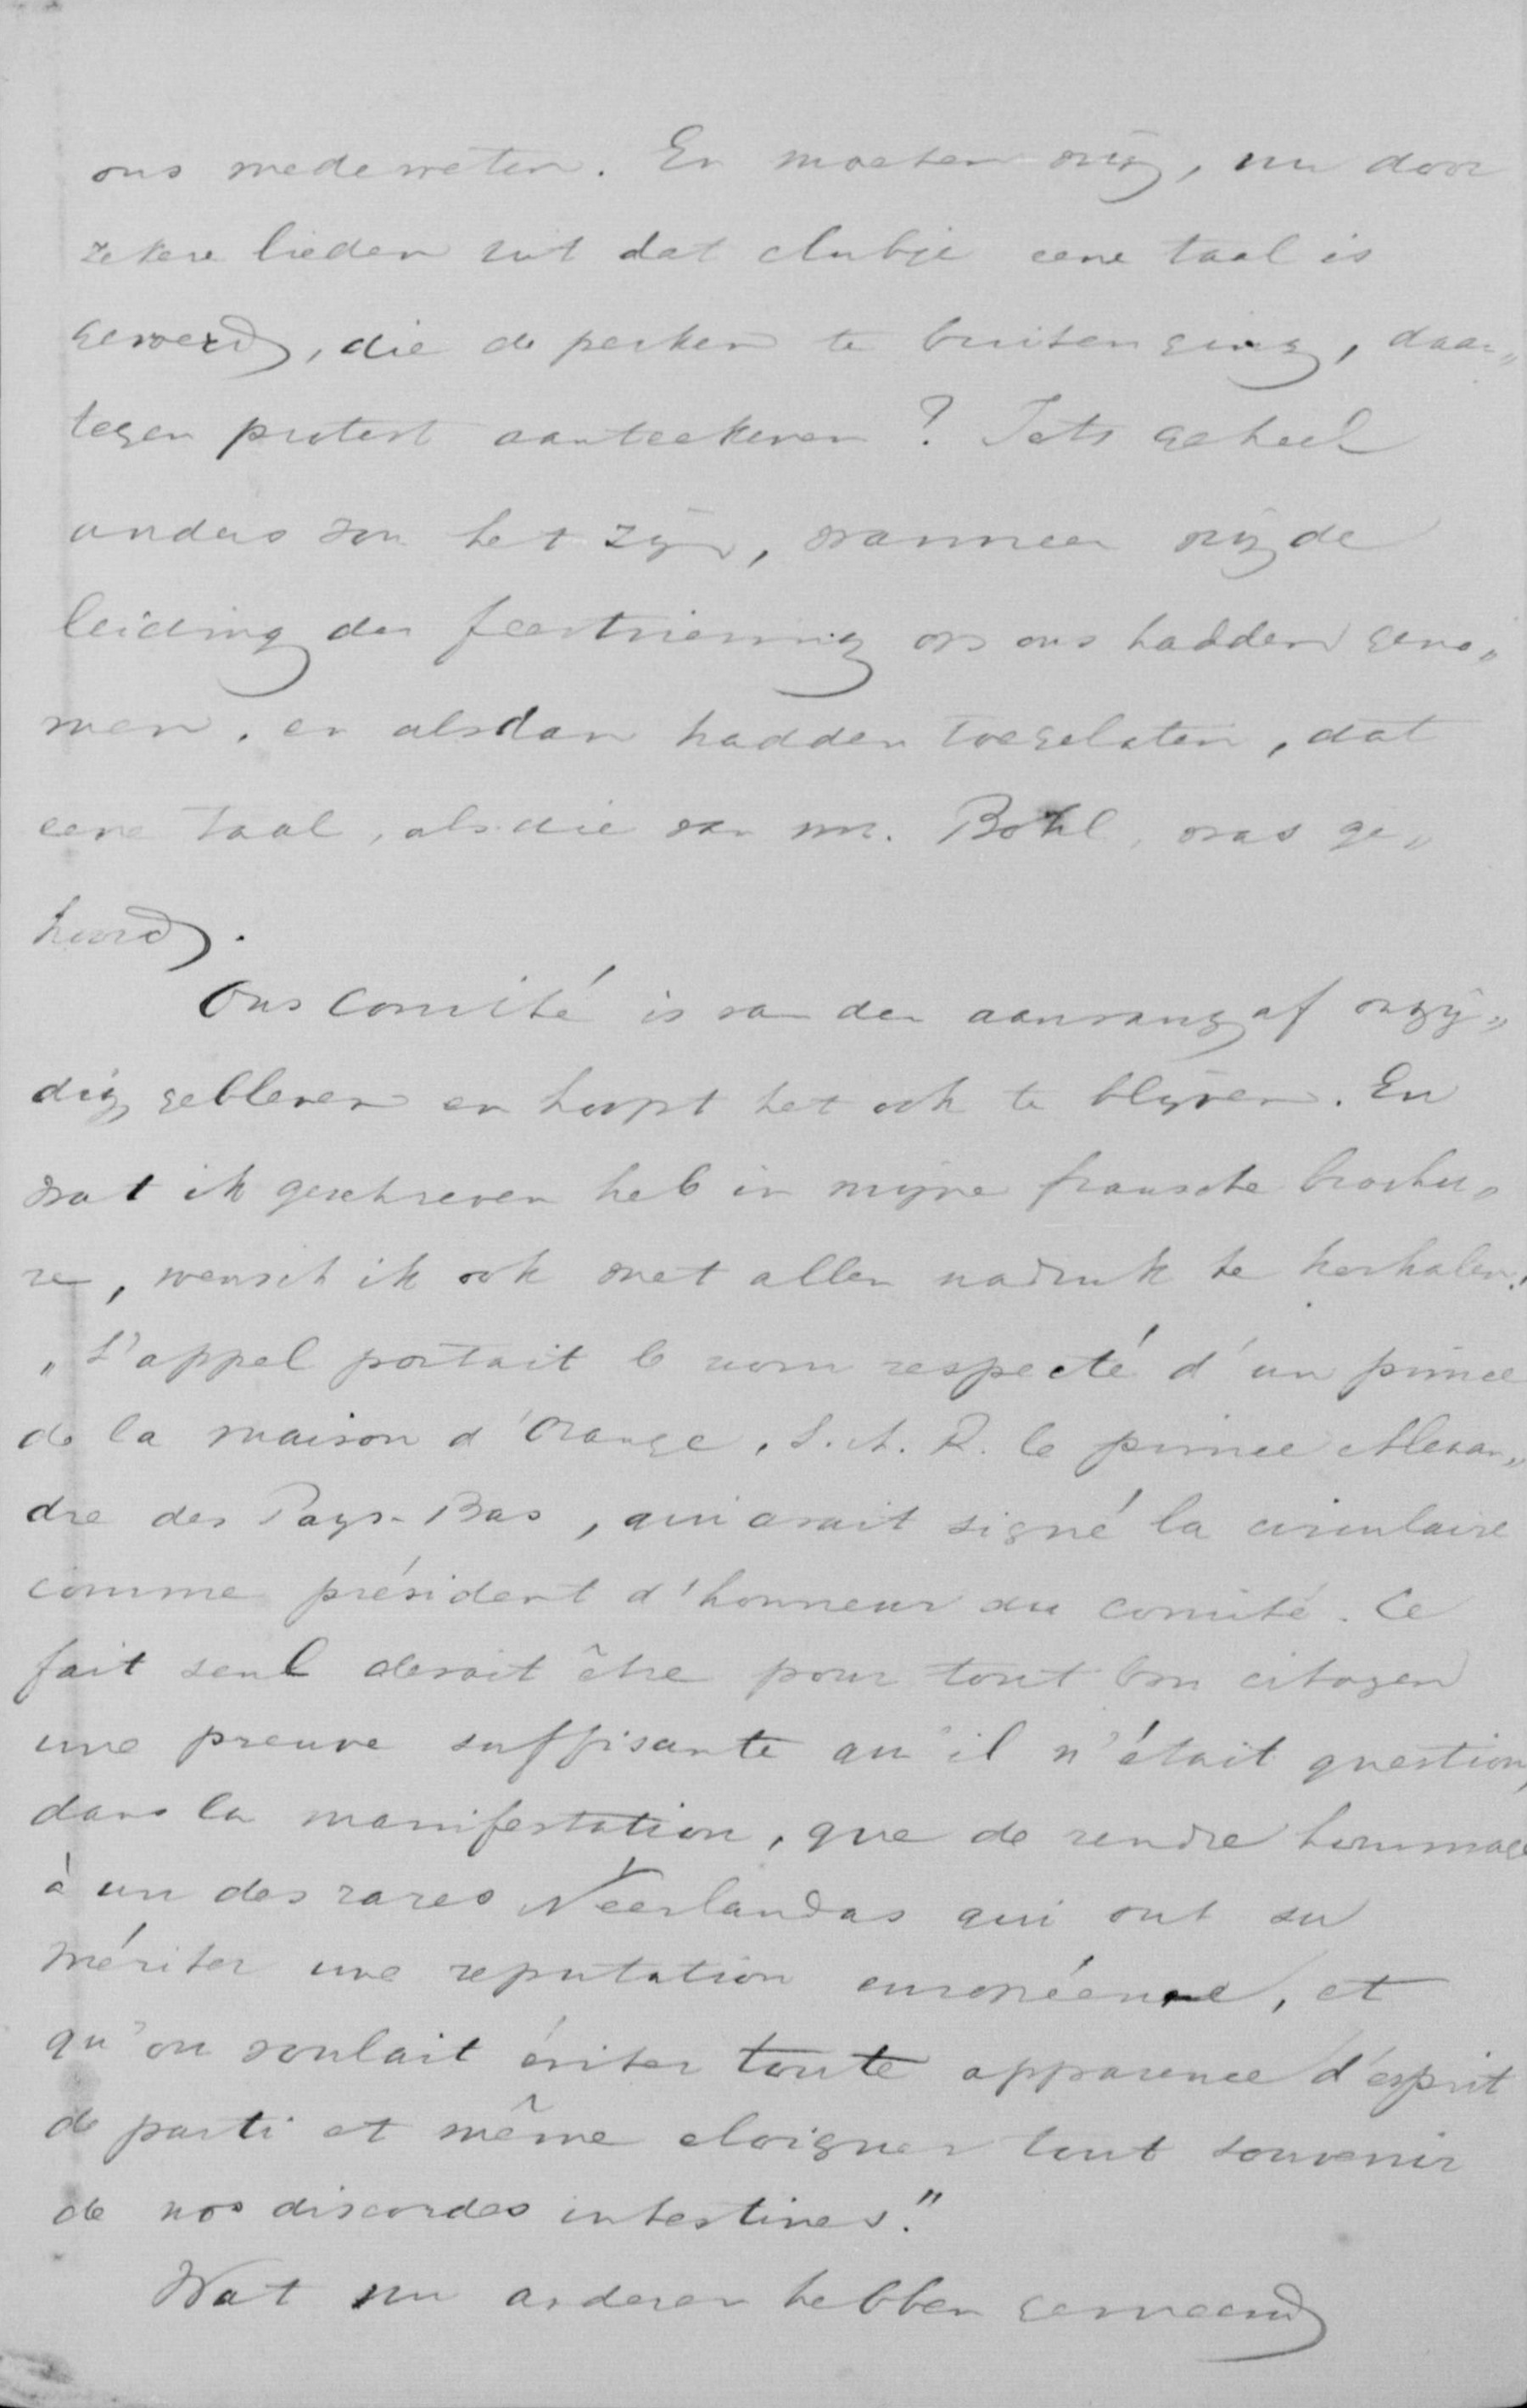 ons medeweten. En moeten wij, nu door
zekere lieden uit dat clubje eene taal is
gevoerd, die de perken te buiten ging, daar„
tegen protest aanteekenen? Iets geheel
anders zou het zijn, wanneer wij de
leiding der feestviering op ons hadden geno„
men, en alsdan hadden toegelaten, dat
eene taal, als die van mr. Bohl, was ge„
hoord.
Ons Comité is van den aanvang af onzij„
dig gebleven en hoopt het ook te blijven. En
wat ik geschreven heb in mijne fransche brochu„
re, wensch ik ook met allen nadruk te herhalen:
„L'appel portait le nom respecté d'un prince
de la maison d'Orange, S. A. R. le prince Alexan„
dre des Pays-Bas, qui avait signé la circulaire
comme président d'honneur du comité. Ce
fait seul devait être pour tout bon citoyen
une preuve suffisante qu'il n'était question,
dans la manifestation, que de rendre hommage
à un des rares Néerlandas qui ont su
mériter une reputation européenne, et
qu'on voulait éviter toute apparence d'esprit
de parti et même eloigner tout souvenir
de nos discordes intestines."
Wat nu anderen hebben gemeend